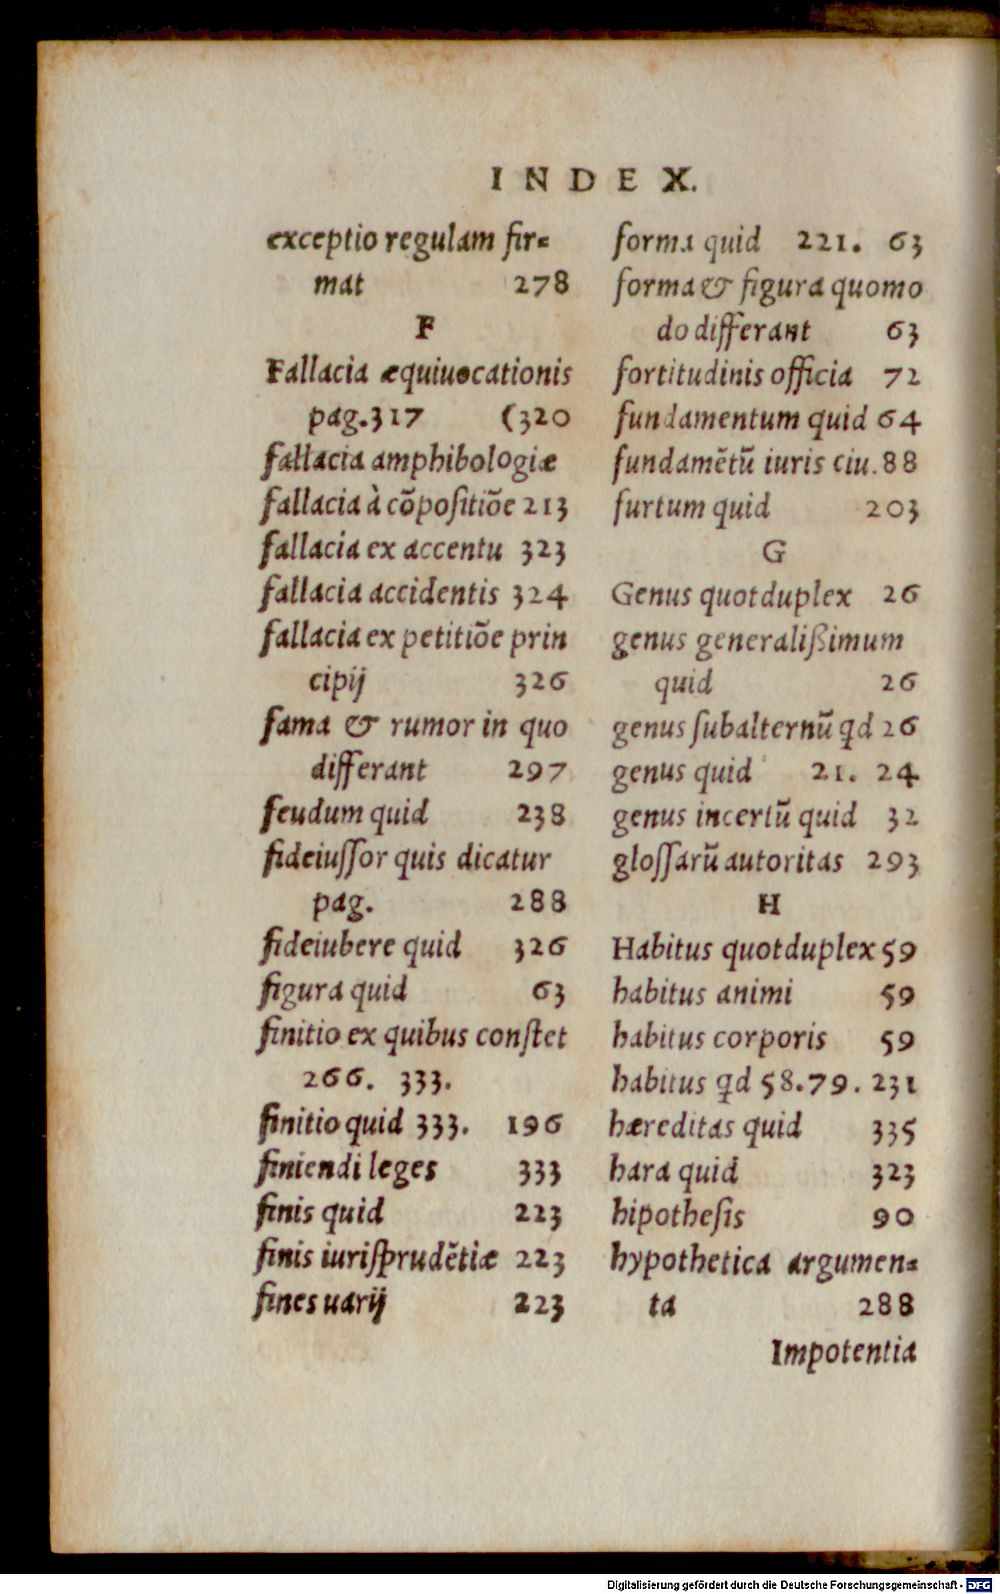 INDEX.
exceptio regulam fir=
mat 278
F
Fallacia æquiuocationis
pag.317 (320
fallacia amphibologiæ
fallacia à cõpoſitiõe 213
fallacia ex accentu 323
fallacia accidentis 324
fallacia ex petitiõe prin
cipij 326
fama & rumor in quo
differant 297
feudum quid 238
fideiuſſor quis dicatur
pag. 288
fideiubere quid 326
figura quid 63
finitio ex quibus conſtet
266. 333.
finitio quid 333. 196
finiendi leges 333
finis quid 223
finis iuriſprudẽtiæ 223
fines uarij 223
forma quid 221. 63
forma & figura quomo
do differant 63
fortitudinis officia 72
fundamentum quid 64
fundamẽtũ iuris ciu. 88
furtum quid 203
G
Genus quotduplex 26
genus generalißimum
quid 26
genus ſubalternũ qd 26
genus quid 21. 24
genus incertũ quid 32
gloſſarũ autoritas 293
H
Habitus quotduplex 59
habitus animi 59
habitus corporis 59
habitus qd 58.79. 231
hæreditas quid 335
hara quid 323
hipotheſis 90
hypothetica argumen=
ta 288
Impotentia
Digitalisierung gefördert durch die Deutsche Forschungsgemeinschaft - DFG